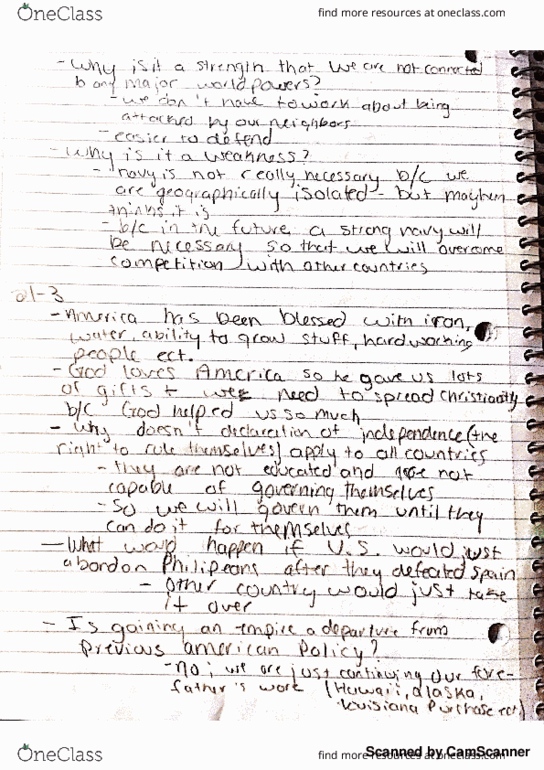 OneClass
find more resources at oneclass.com
- Why is it a strength that we are not connected
to any major world powers?
- we don't have to work about being
attacked by our neighbors
- easier to defend
- Why is it a weakness?
- navy is not really necessary b/c we
are geographically isolated - but mayhem
thinks it is
- b/c in the future a strong navy will
be necessary so that we will overcome
competition with other countries
21-3
- America has been blessed with iron,
water, ability to grow stuff, hardworking
people ect.
- God loves America so he gave us lots
of gifts + we need to spread christianity
b/c God helped us so much
- Why doesn't declaration of independence (the
right to rule themselves) apply to all countries
- they are not educated and are not
capable of governing themselves
- So we will govern them until they
can do it for themselves
- What would happen if U.S. would just
abandon Philipeans after they defeated Spain
- Other country would just take
it over
- Is gaining an empire a departure from
previous american policy?
- no; we are just continuing our fore-
father's work (Hawaii, alaska,
louisiana Purchase ect)
OneClass
find more resources at oneclass.com
Scanned by CamScanner